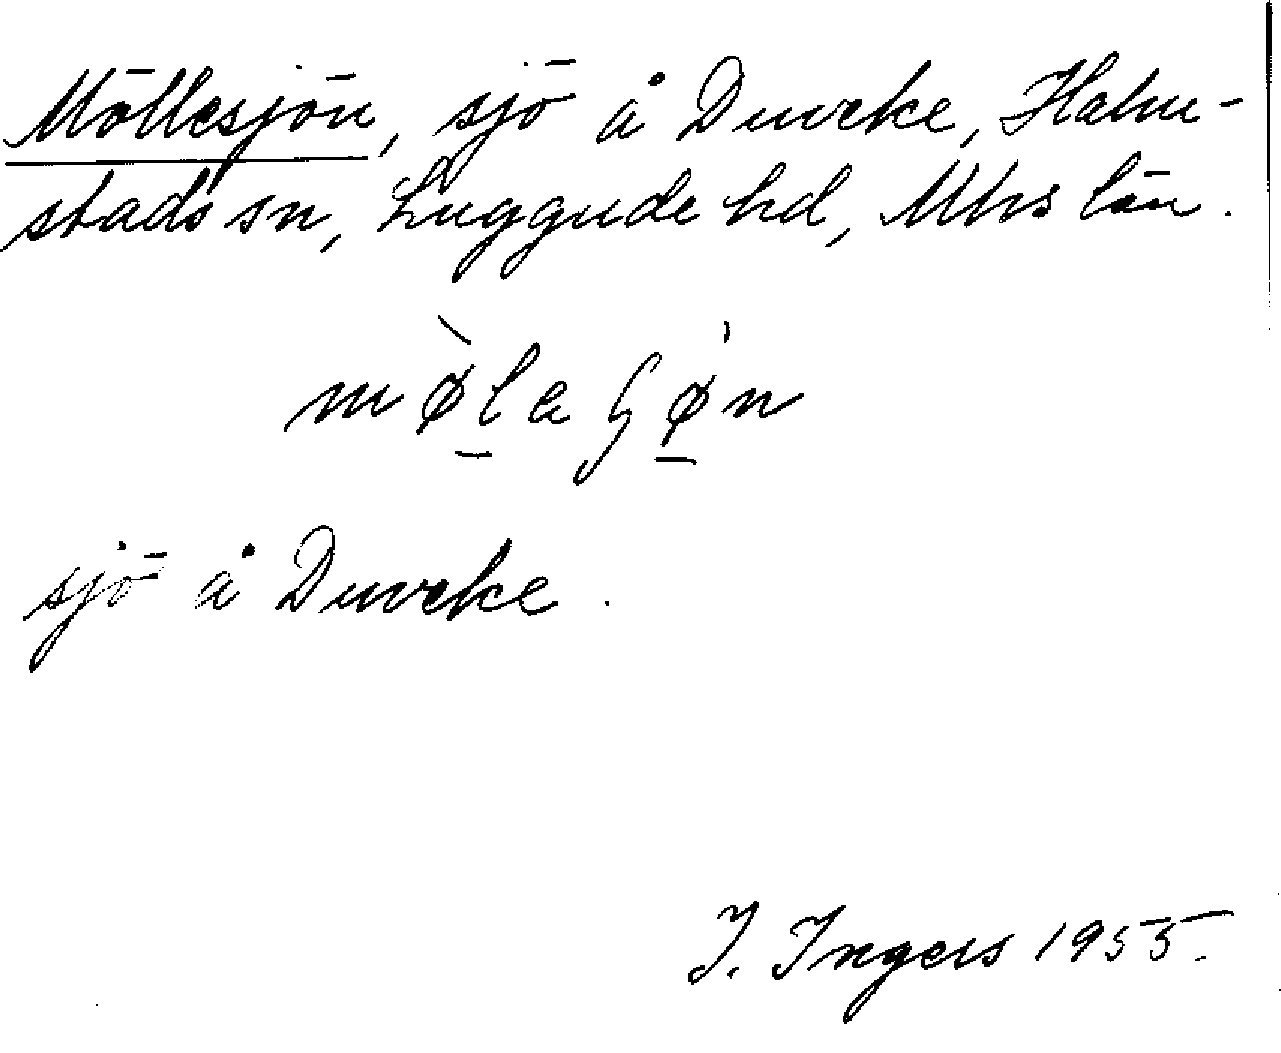 Möllesjön, sjö å Duveke, Halm-
stads sn, Luggude hd, Mhs län.
sjö å Duveke.
I. Ingers 1955.